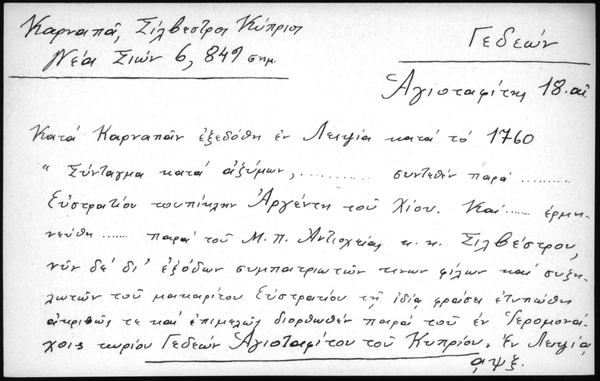 Καρναπᾶ, Σίλβεστρος Κύπριος
Νέα Σιών 6, 849 σημ.
Γεδεών
Ἁγιοταφίτης 18. αἰ.
Κατά Καρναπᾶν ἐξεδόθη ἐν Λειψία κατά τό 1760
"Σύνταγμα κατά ἀζύμων, .......... συντεθέν παρά .........
Εὐστρατίου τουπίκλην Ἀργέντη τοῦ Χίου. Καί ...... ἑρμη-
νεύθη ...... παρά τοῦ Μ. Π. Ἀντιοχείας κ. κ. Σιλβέστρου,
νῦν δέ δι' ἐξόδων συμπατριωτῶν τινων φίλων καί συζη-
λωτῶν τοῦ μακαρίτου Εὐστρατίου τῇ ἰδίᾳ φράσει ἐτυπώθη
ἀκριβῶς τε καί ἐπιμελῶς διορθωθέν παρά τοῦ ἐν Ἱερομονά-
χοις κυρίου Γεδεών Ἁγιοταφίτου τοῦ Κυπρίου. Ἐν Λειψίᾳ
͵αψξ.